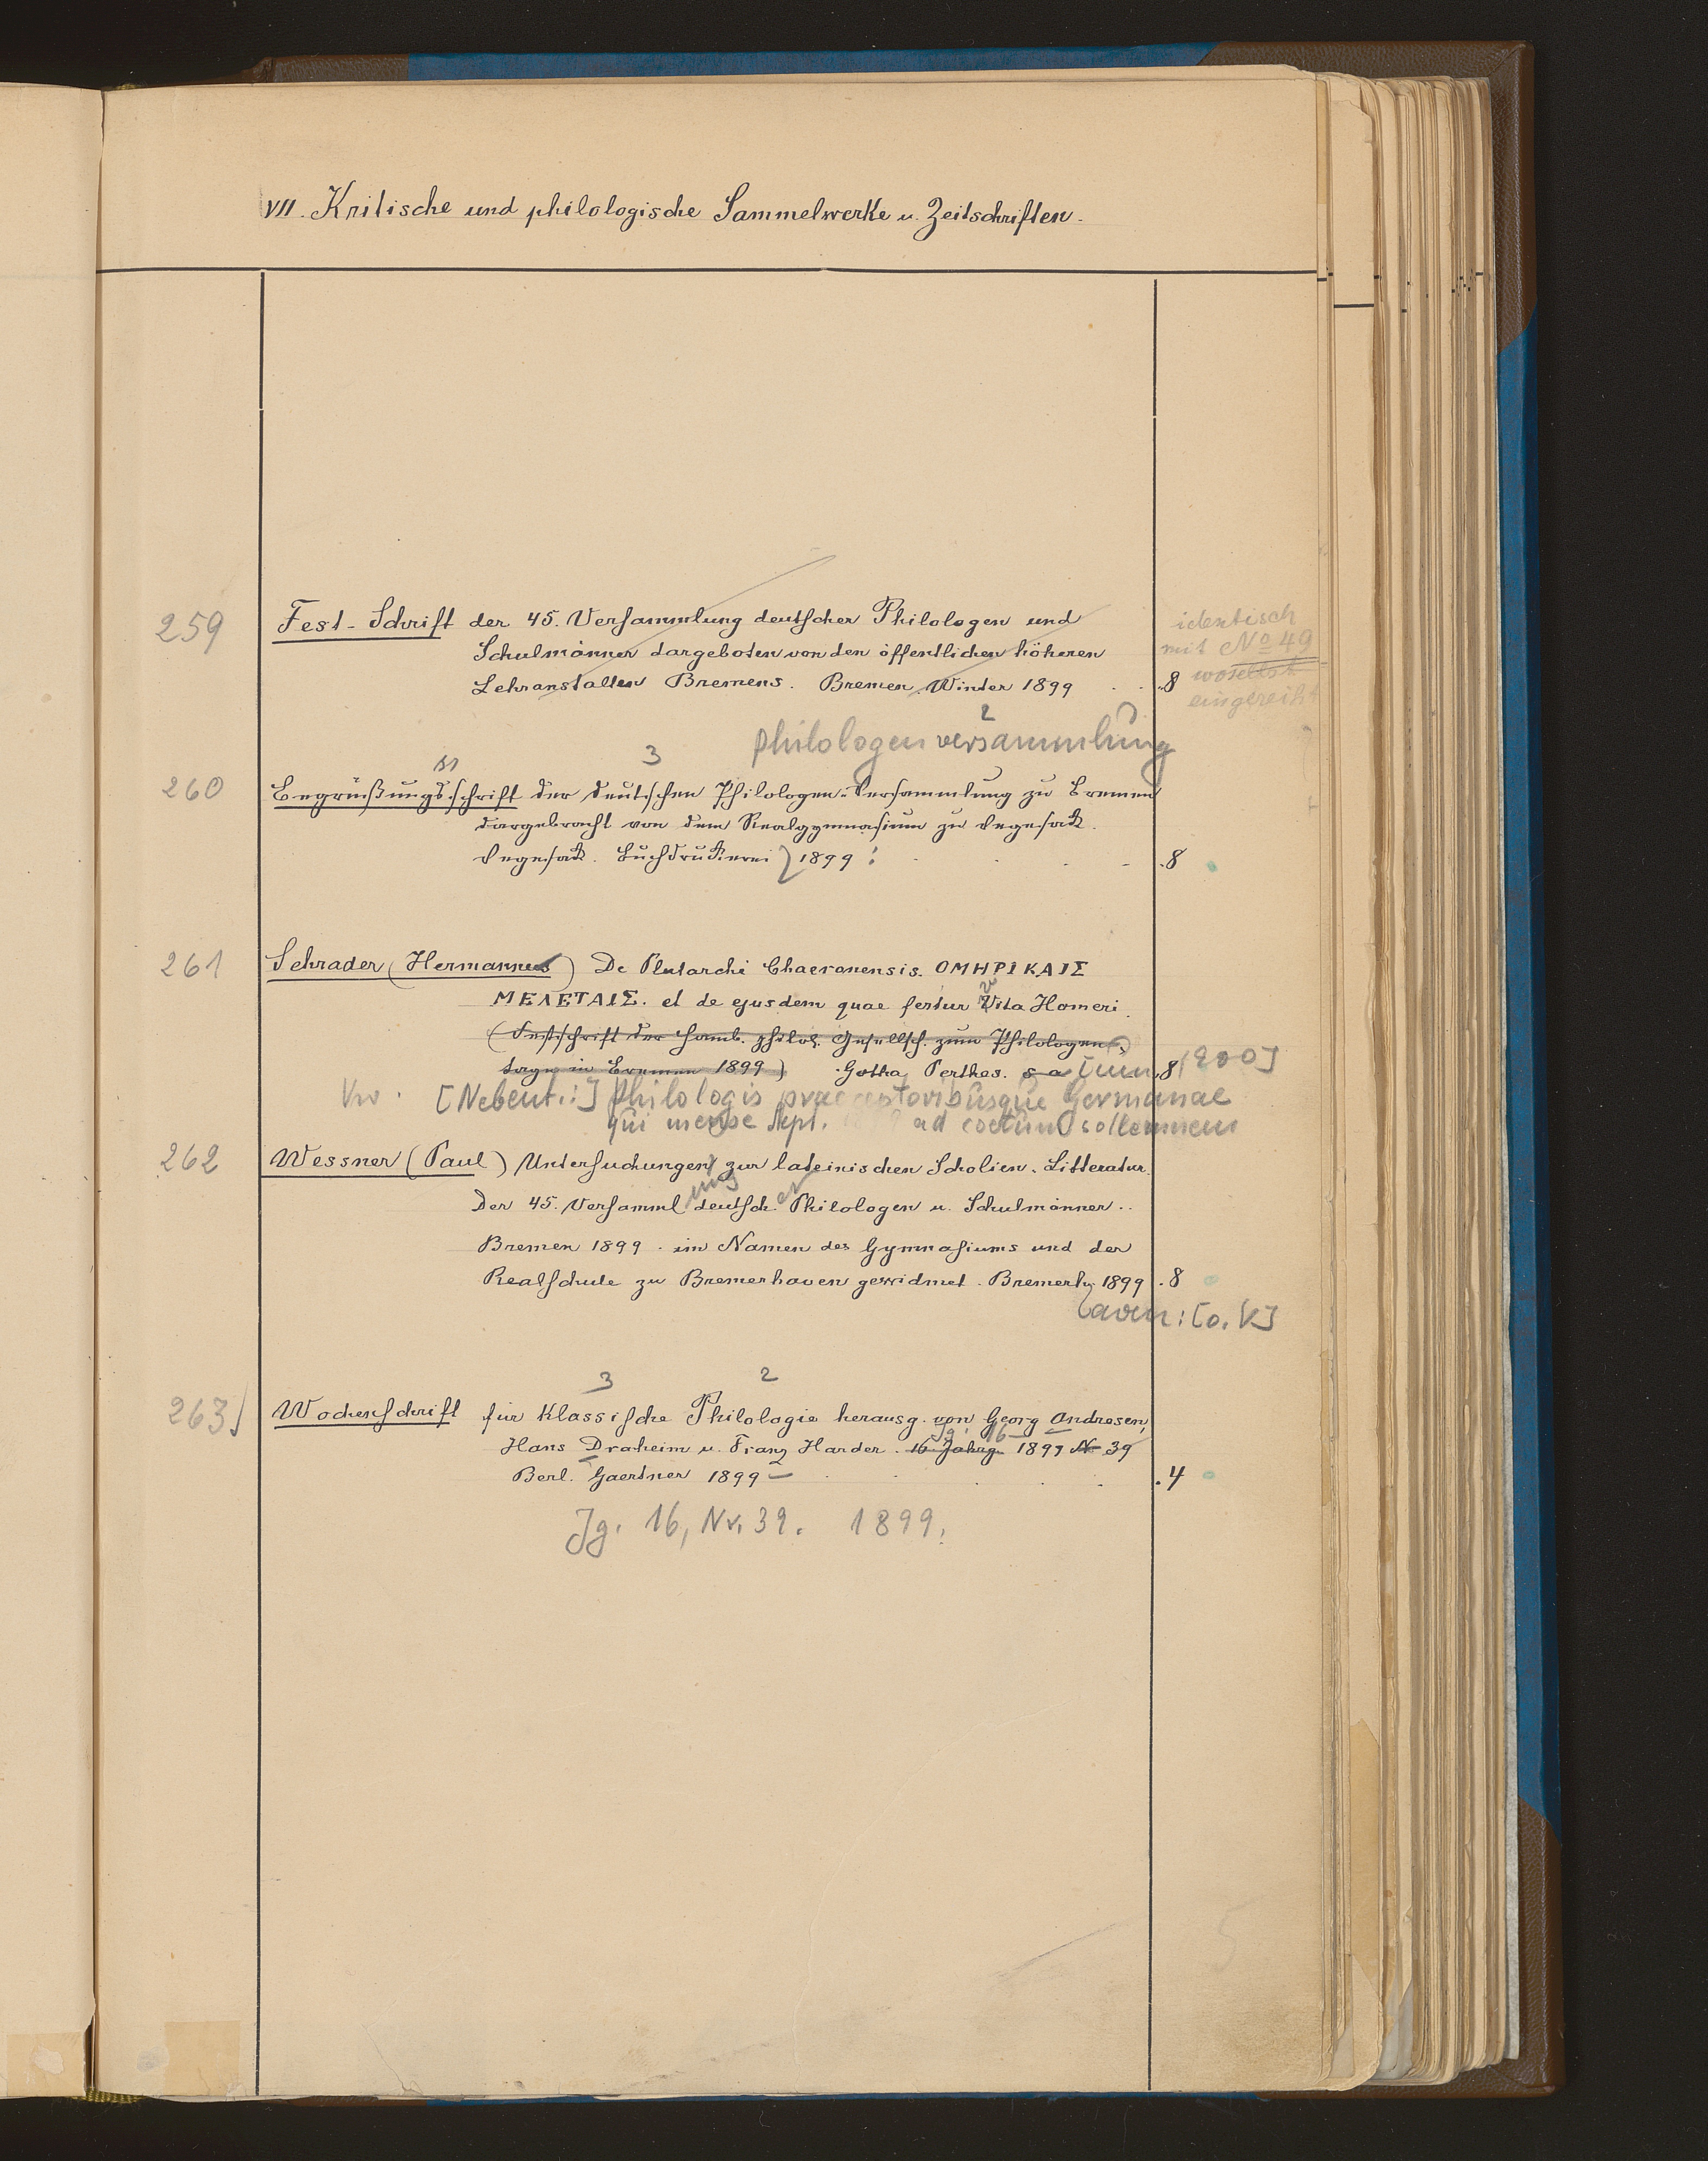 VII. Kritische und philologische Sammelwerke u. Zeitschriften.
259 Fest-Schrift der 45. Versammlung deutscher Philologen und
Schulmänner dargeboten von den öffentlichen höheren
Lehranstalten Bremens. Bremen, Winter 1899 . . 8
identisch
mit No 49
woselbst
eingereiht
philologenversammlung
2
3
ss
260 Begrüßungsschrift der deutschen Philologen-Versammlung zu Bremen
dargebracht von dem Realgymnasium zu Vegesack.
Vegesack. Buchdruckerei 1899 : . . - .8
261 Schrader (Hermannus) De Plutarchi Chaeronensis. ΟΜΗΡΙΚΑΙΣ
ΜΕΛΕΤΑΙΣ. et de ejusdem quae fertur Vita Homeri.
(Festschrift der Hamb. philol. Gesellsch. zum Philologen-
tage in Bremen 1899) Gotha, Perthes. s a 8 1900]
[Nebent.:] Philologis praeceptoribusque Germanae
qui mense Sept. ad coetum sollemnem
262 Wessner (Paul) Untersuchungen zur lateinischen Scholien-Litteratur.
Der 45. Versamml deutsch. Philologen u. Schulmänner..
ung er
Bremen 1899. im Namen des Gymnasiums und der
Realschule zu Bremerhaven gewidmet. Bremerh. 1899 .8
aven: [o. V.]
3 2
263 Wochenschrift für Klassische Philologie herausg. von Georg Andresen,
Jg. 16
Hans Draheim u. Franz Harder. 16 Jahrg. 1899 No 39
Berl. Gaertner 1899 - . . . .4
Jg. 16, Nr. 39. 1899.